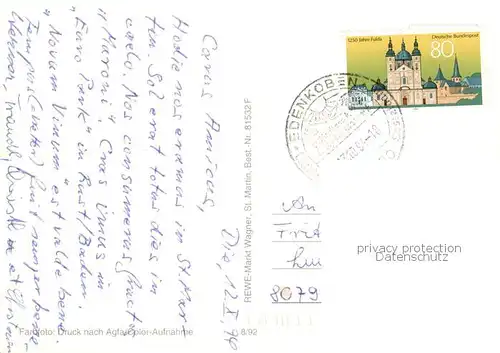 Carus Amicus,
Hodie nos eramus in St. Mar-
tin. Sol erat totus dies in
caelo. Nos consumemus (factum)
"Maroni". Cras imus in
"Euro Park" in Rust/Baden.
"Novum Vinum est valde bene.
Tempus (Wetter) fuit semper bene
Werner, Traudl,
Die, 12. X. 94
REWE-Markt Wagner, St. Martin, Best.-Nr. 81532F
Farbfoto: Druck nach Agfacolor-Aufnahme
8/92
1250 Jahre Fulda
Deutsche Bundespost
80
EDENKOBEN
An
8079
privacy protection
Datenschutz